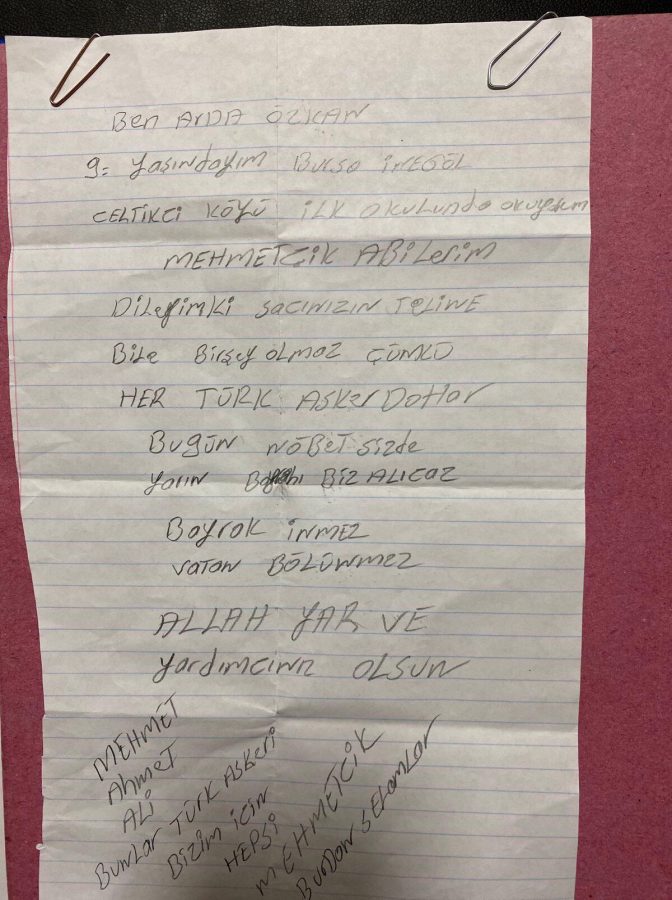 Ben ARDA ÖZKAN
9. yaşındayım Bursa İNEGÖL
CELTİKCİ KÖYÜ İLK Okulunda okuyorum
MEHMETCİK ABİLerim
Dileğimki sacınızın TELİNE
Bile Birşey olmaz ÇÜMKÜ
HER TÜRK ASKer Doğar
Bugün NÖBeT sizde
yarın Bayrağı BİZ ALICAZ
Bayrak İNMEZ
vatan BÖLÜNMEZ
ALLAH YAR VE
yardımcınız OLSUN
MEHMET
Ahmet
ALİ
Bunlar TÜRK ASKeri
BİZİM İÇİN
HEPSİ
MEHMETCİK
Burdan SELAMLAR